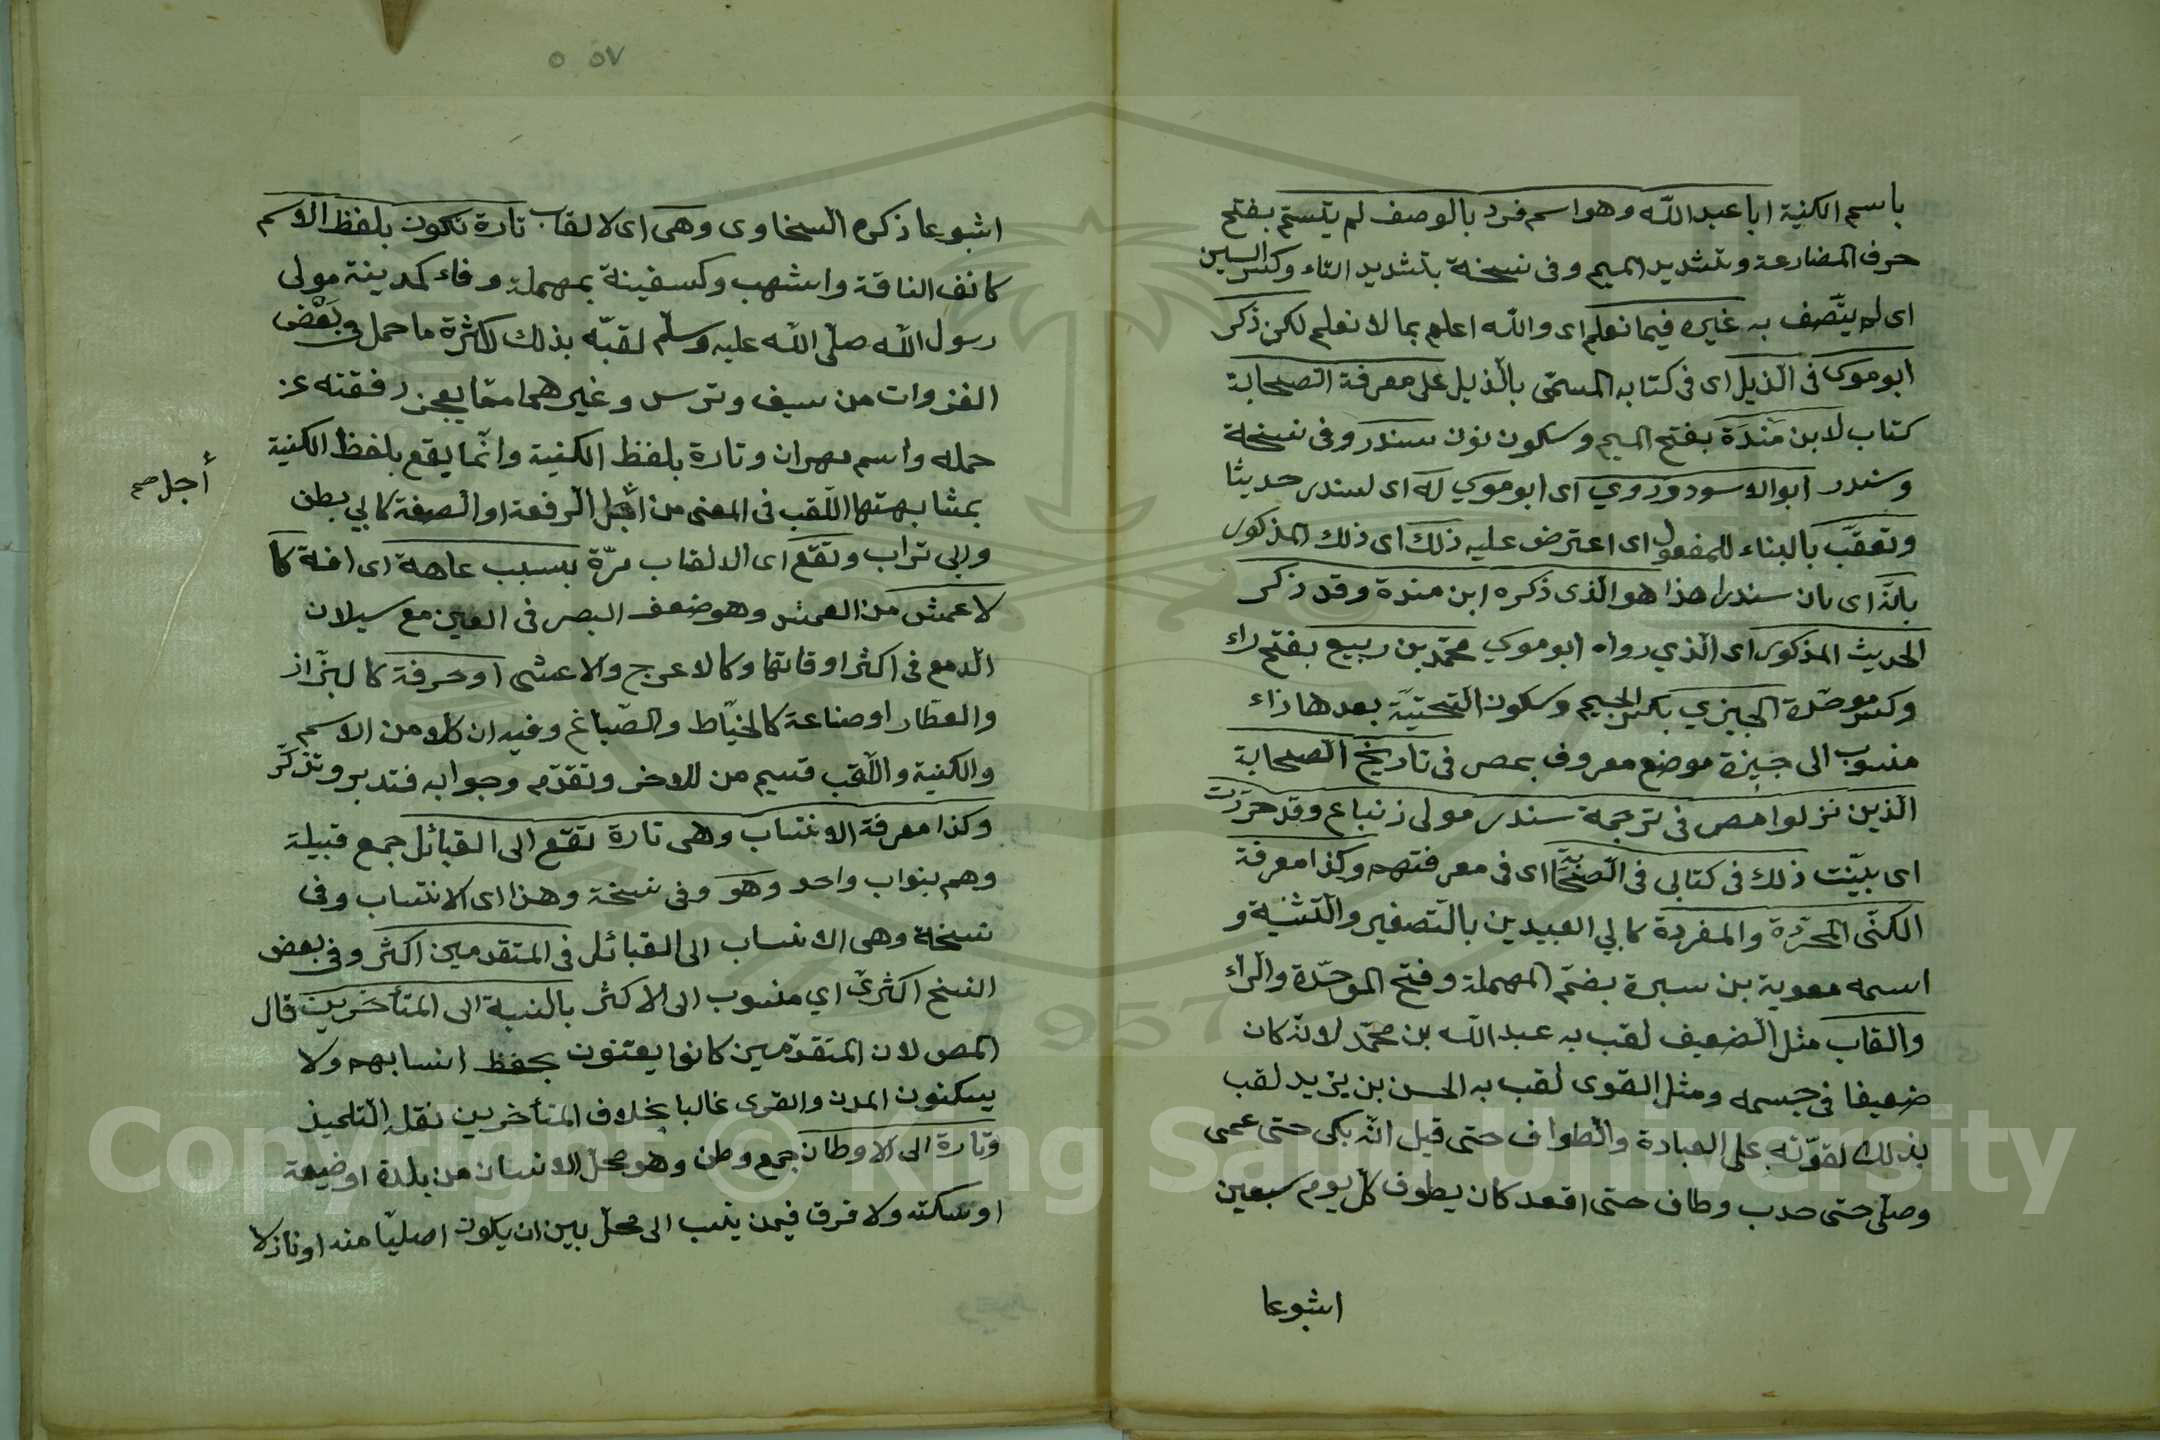 باسم الكنية ابا عبد اللّه وهو اسم فرد بالوصف لم يتسمّ بفتح
حرف المضارعة وتشديد الميم وفى نسخة بتشديد التاء وكسر السين
اى لم يتّصف به غيره فيما نعلم اى واللّه اعلم بما لا نعلم لكن ذكر
ابو موسى فى الذيل اى فى كتابه المسمّى بالذيل على معرفة الصحابة
كتاب لابن مَندَة بفتح الميم وسكون نون سندر وفى نسخة
وسندر ابو الاسود وروي اى ابو موسي له اى لسندر حديثا
وتعقّب بالبناء للمفعول اى اعترض عليه ذلك اى ذلك المذكور
بانّه اى بان سندرا هذا هو الّذى ذكره ابن مندة وقد ذكر
الحديث المذكور اى الّذي رواه ابو موسي محمّد بن ربيع بفتح راء
وكسر موحّدة الجيزي بكسر الجيم وسكون التّحتيّة بعدها زاء
منسوب الى جيزة موضع معروف بمصر فى تاريخ الصحابة
الّذين نزلوا مصر فى ترجمة سندر مولى زنباع وقد حرّرت
اى بيّنت ذلك فى كتابي فى الصّحابة اى فى معرفتهم وكذا معرفة
الكنى المجرّدة والمفردة كابي العبيدين بالتّصغير والتّثنية و
اسمه معوية بن سبرة بضمّ المهملة وفتح الموحّدة والرّاء
والقاب مثل الضعيف لقب به عبد اللّه بن محمّد لانّه كان
ضعيفا فى جسمه ومثل القوى لقب به الحسن بن يزيد لقب
بذلك لقوّته على العبادة والطواف حتى قيل انّه بكى حتى عمى
وصلّى حتى حدب وطاف حتى اقعد كان يطوف كلّ يوم سبعين
اشبوعا
٥٧ ٥
اشبوعا ذكره السخاوى وهى اى الالقاب تارة تكون بلفظ الاسم
كانف الناقة واشهب وكسفينة بمهملة وفاء كمدينة مولى
رسول اللّه صلّى اللّه عليه وسلّم لقبّه بذلك لكثرة ما حمل فى بَعْض
الغزوات من سيف وترس وغيرهما ممّا يعجز رفقته عن
حمله واسم مهران وتارة بلفظ الكنية وانّما يقع بلفظ الكنية
بمشابهتها اللّقب فى المعنى من اجل الرفعة او الصفة كابي بطن
وابى تراب وتقع اى الالقاب مرّة بسبب عاهة اى افة كا
لاعمش من العمش وهو ضعف البصر فى العين مع سيلان
الدمع فى اكثر اوقاتها وكالاعرج والاعشى او حرفة كالبزّاز
والعطّار او صناعة كالخيّاط والصّباغ وفيه ان كلا من الاسم
والكنية واللّقب قسيم من للاخر وتقدّم وجوابه فتدبر وتذكّر
وكذا معرفة الانتساب وهى تارة تقع الى القبائل جمع قبيلة
وهم بنو اب واحد وهو وفى نسخة وهذا اى الانتساب وفى
نسخة وهى الانساب الى القبائل فى المتقدمين اكثر وفى بعض
النسخ اكثرىّ اي منسوب الى الاكثر بالنسبة الى المتأخرين قال
المص لان المتقدّمين كانوا يعتنون بحفظ انسابهم ولا
يسكنون المدن والقرى غالبا بخلاف المتأخرين نقله التلميذ
وتارة الى الاوطان جمع وطن وهو محلّ الانسان من بلدة او ضيعة
او سكنه ولا فرق فيمن ينسب الى محلّ بين ان يكون اصليّا منه او نازلا
أجل صح
Copyright © King Saud University
1957